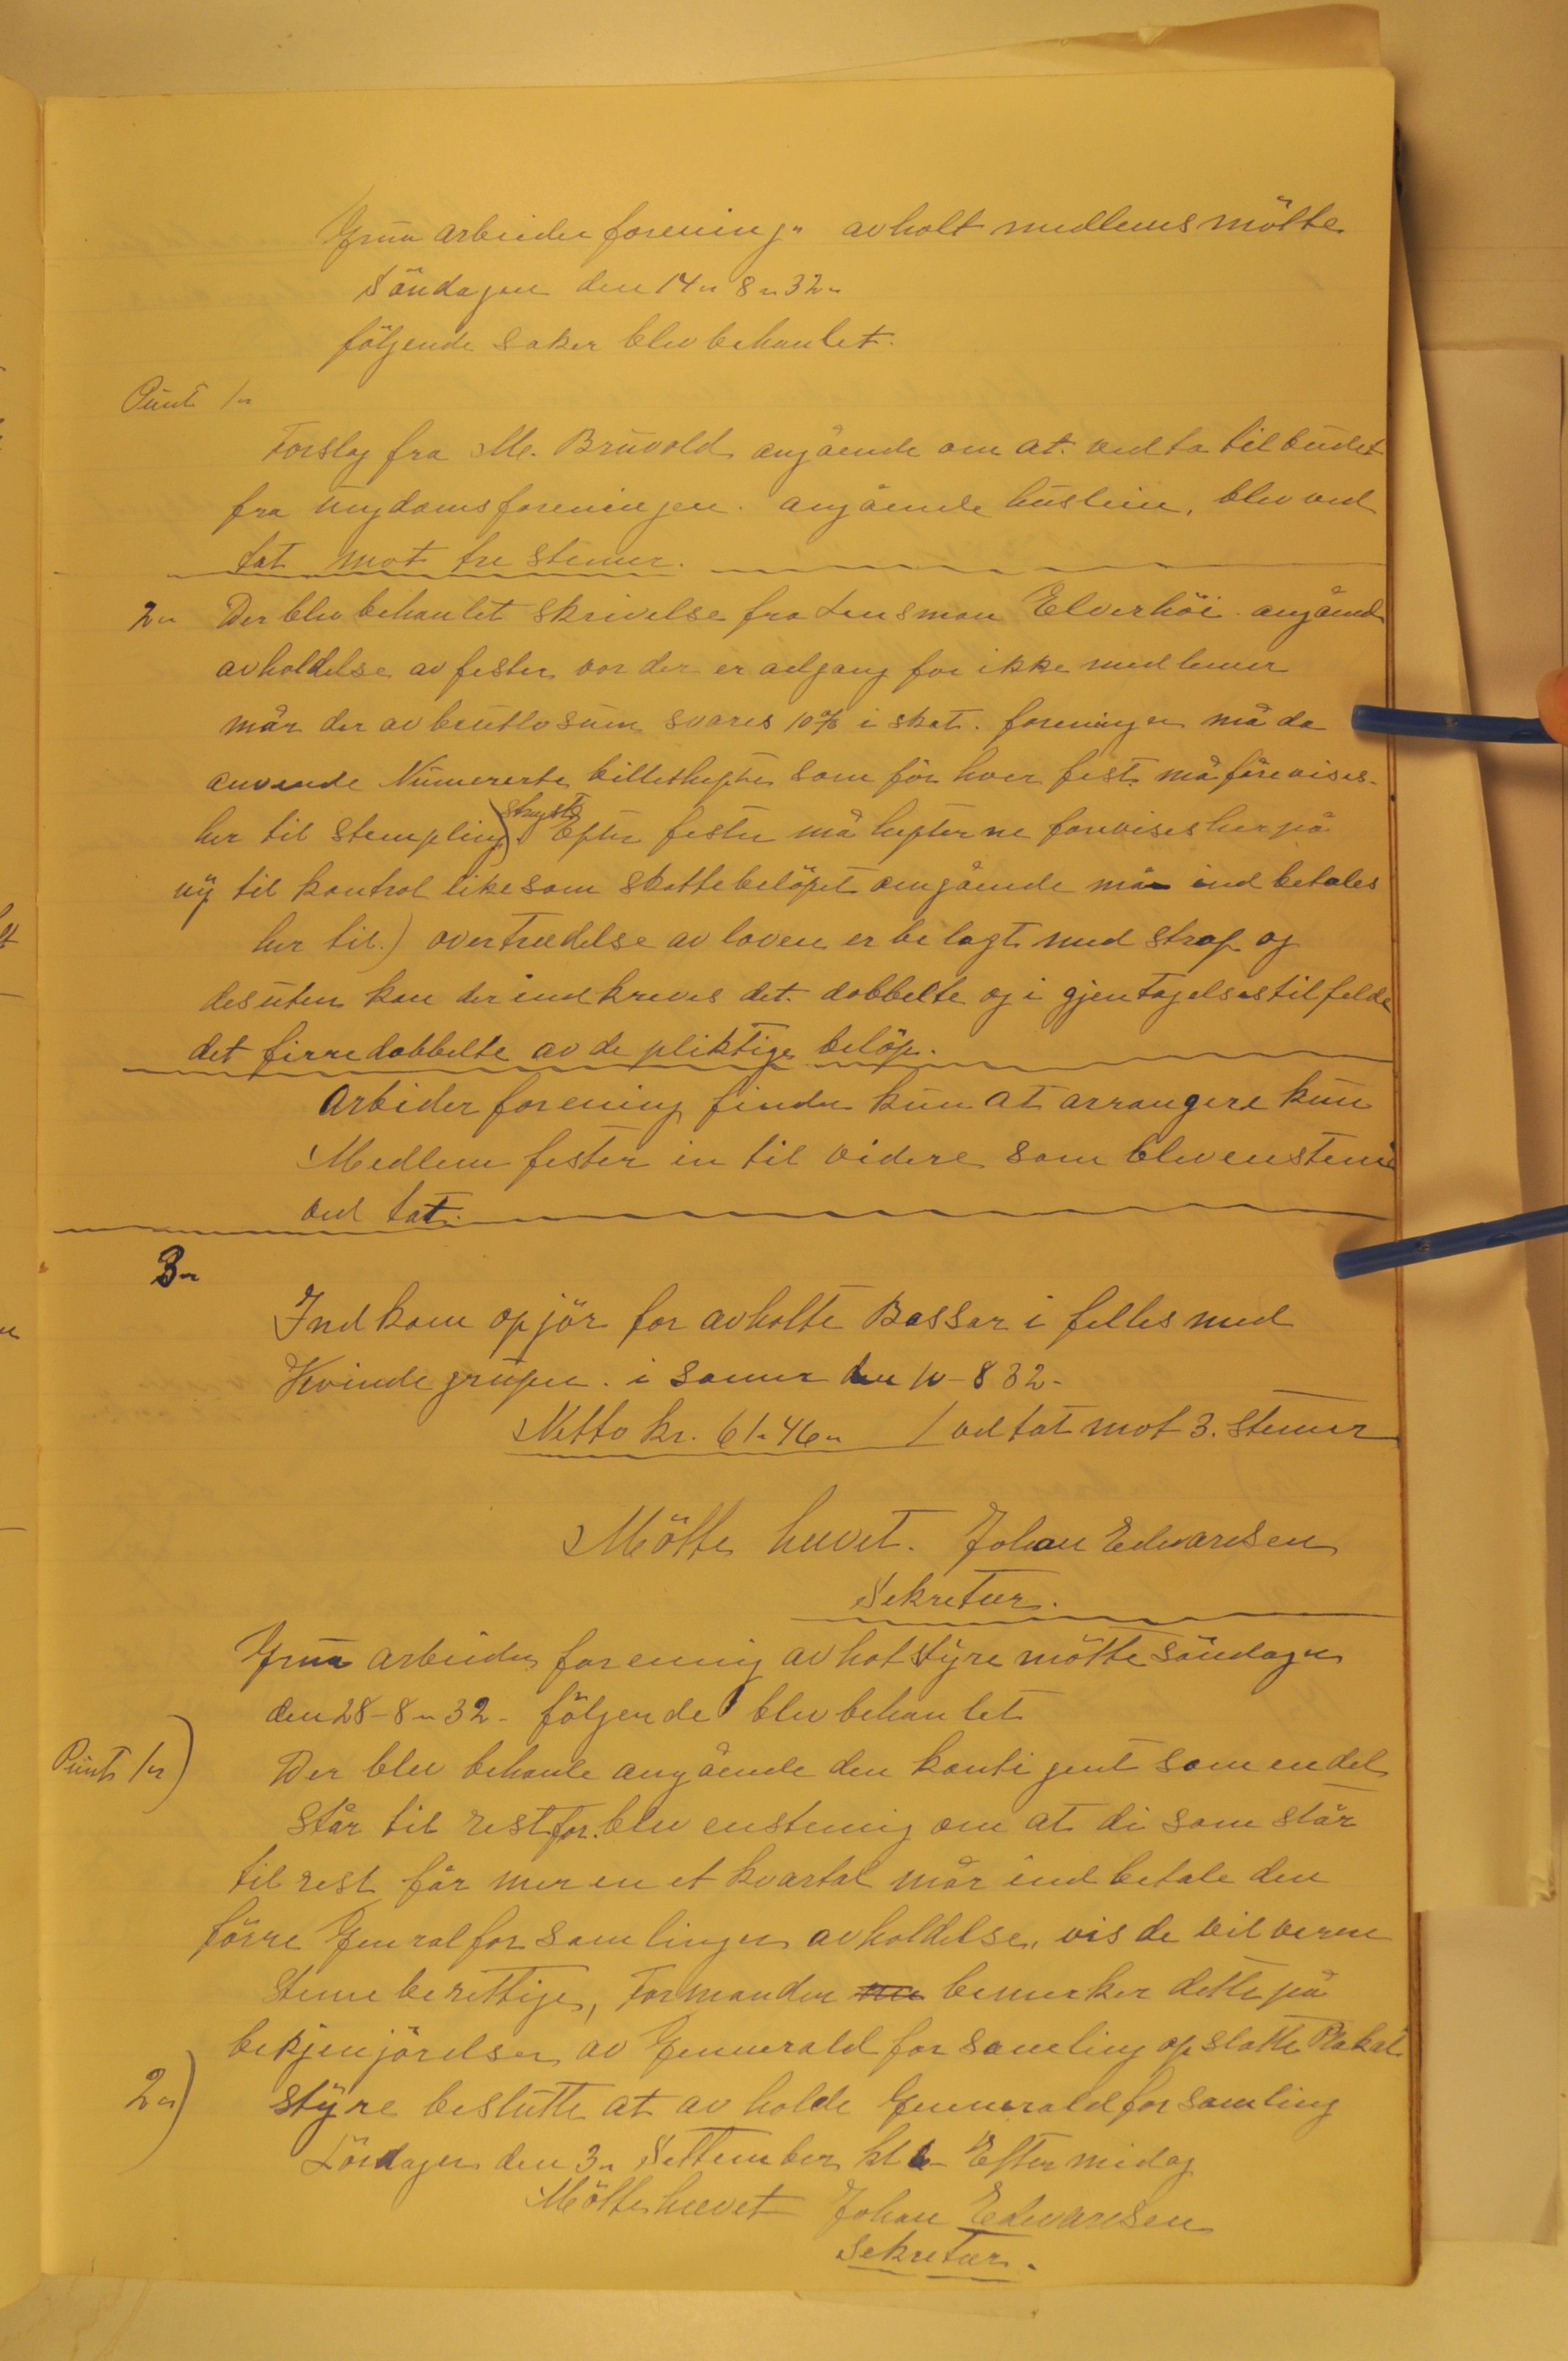 Grua arbeider forening" avholt medlemsmötte
Söndagen den 14" 8" 32"
följende saker blev behanlet.
Punt 1"
Forslag fra M. Bruvold angående om at vedta tilbudet
fra ungdomsforeningen. angående husleie, blev ved
tat mot tre stemer.
2" Der blev behanlet skrivelse fra Lensman Elverhöi angående
avholdelse av fester vor der er adgang for ikke medlemer
når der av bruttosum svares 10% i skat. foreningen må da
anvende Numererte billethefter som för hver fest må förevises
her til stempling) strafts Efter fester må hefterne forevises her på
ny til kontrol likesom skattebelöpet omgående må indbetales
her til.) overtrædelse av loven er belagt med straf og
desuten kan der indkreves det dobbelte og i gjentagelsestilfelde
det firredobbelte av de pliktige belöp.
Arbider forening finder kun at arrangere kun
Medlem fester in til videre som blev enstemi
ved tat.
3"
Indkom opjör for avholte Bassar i felles med
Kvinde grupen. i somer den 10-8 32-
Netto kr. 61"46" / vedtat mot 3. stemer
Mötte hevet. Johan Edvardsen
Sekretær.
Grua arbeider forening avhot styre mötte söndagen
den 28-8"32- följende blev behanlet
Punt 1")
Der blev behanle angående den kontigent som endel
står til rest for. blev enstemig om at di som står
til rest får mer en et kvartal må indbetale den
förre Genralforsamlingen avholdelse, vis de vil verre
steme berettige, Formanden bemerker dette på
bekjenjörelsen av Gennerald forsamling opslatte Plakat.
2")
styre beslutte at av holde Gennerald forsamling
Lördagen den 3" Settember kl 6- Eftermidag
Möttehevet Johan Edvardsen
Sekretær.